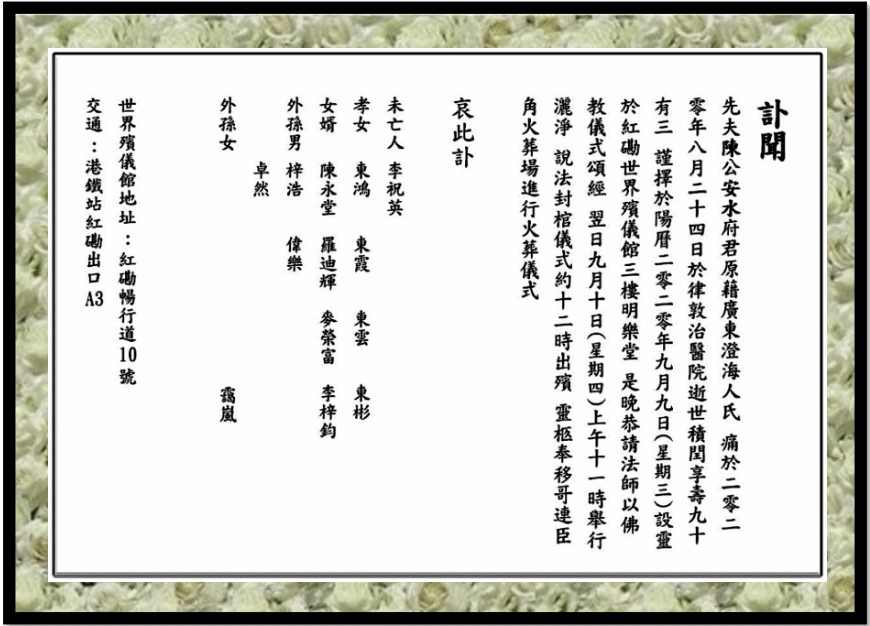 訃聞
先夫陳公安水府君原籍廣東澄海人氏 痛於二零二
零年八月二十四日於律敦治醫院逝世積閏享壽九十
有三 謹擇於陽曆二零二零年九月九日(星期三)設靈
於紅磡世界殯儀館三樓明樂堂 是晚恭請法師以佛
教儀式頌經 翌日九月十日(星期四)上午十一時舉行
灑淨 說法封棺儀式約十二時出殯 靈柩奉移哥連臣
角火葬場進行火葬儀式
哀此訃
未亡人 李祝英
孝女 東鴻 東霞 東雲 東彬
女婿 陳永堂 羅迪輝 麥榮富 李梓鈞
外孫男 梓浩 偉樂
卓然
外孫女 靄嵐
世界殯儀館地址:紅磡暢行道10號
交通:港鐵站紅磡出口A3